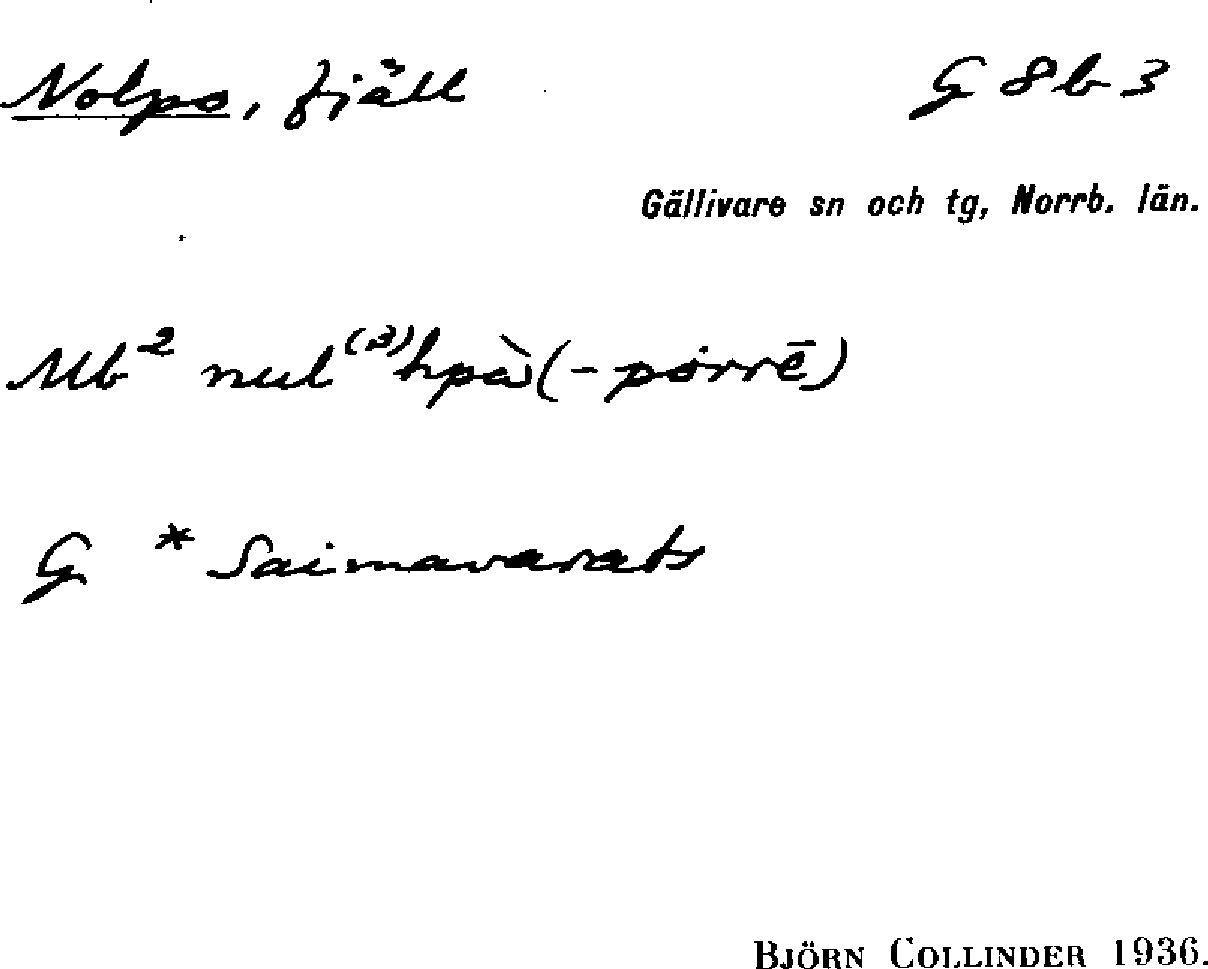 Nolpo, fjäll G 8 b 3
Gällivare sn och tg, Norrb. län.
Mb² nul⁽³⁾hpà (-pɷrrē)
G * Saimavarats
BJÖRN COLLINDER 1936.